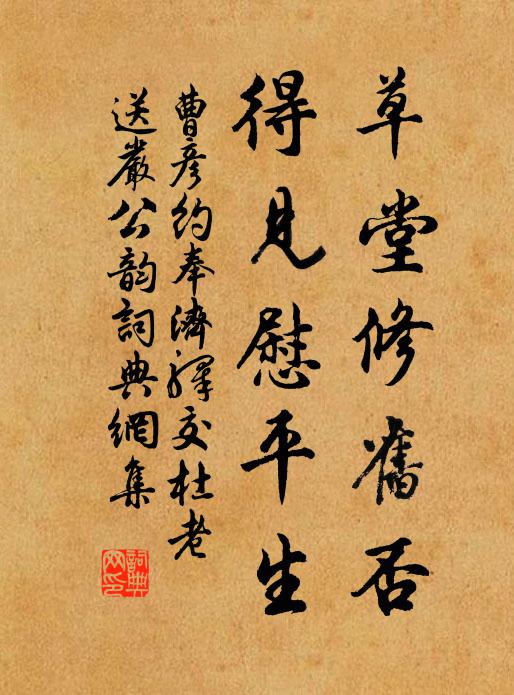 草堂修舊否
得見慰平生
曹彥約奉濟驛交杜老
送嚴公韵詞典網集
詞典网印